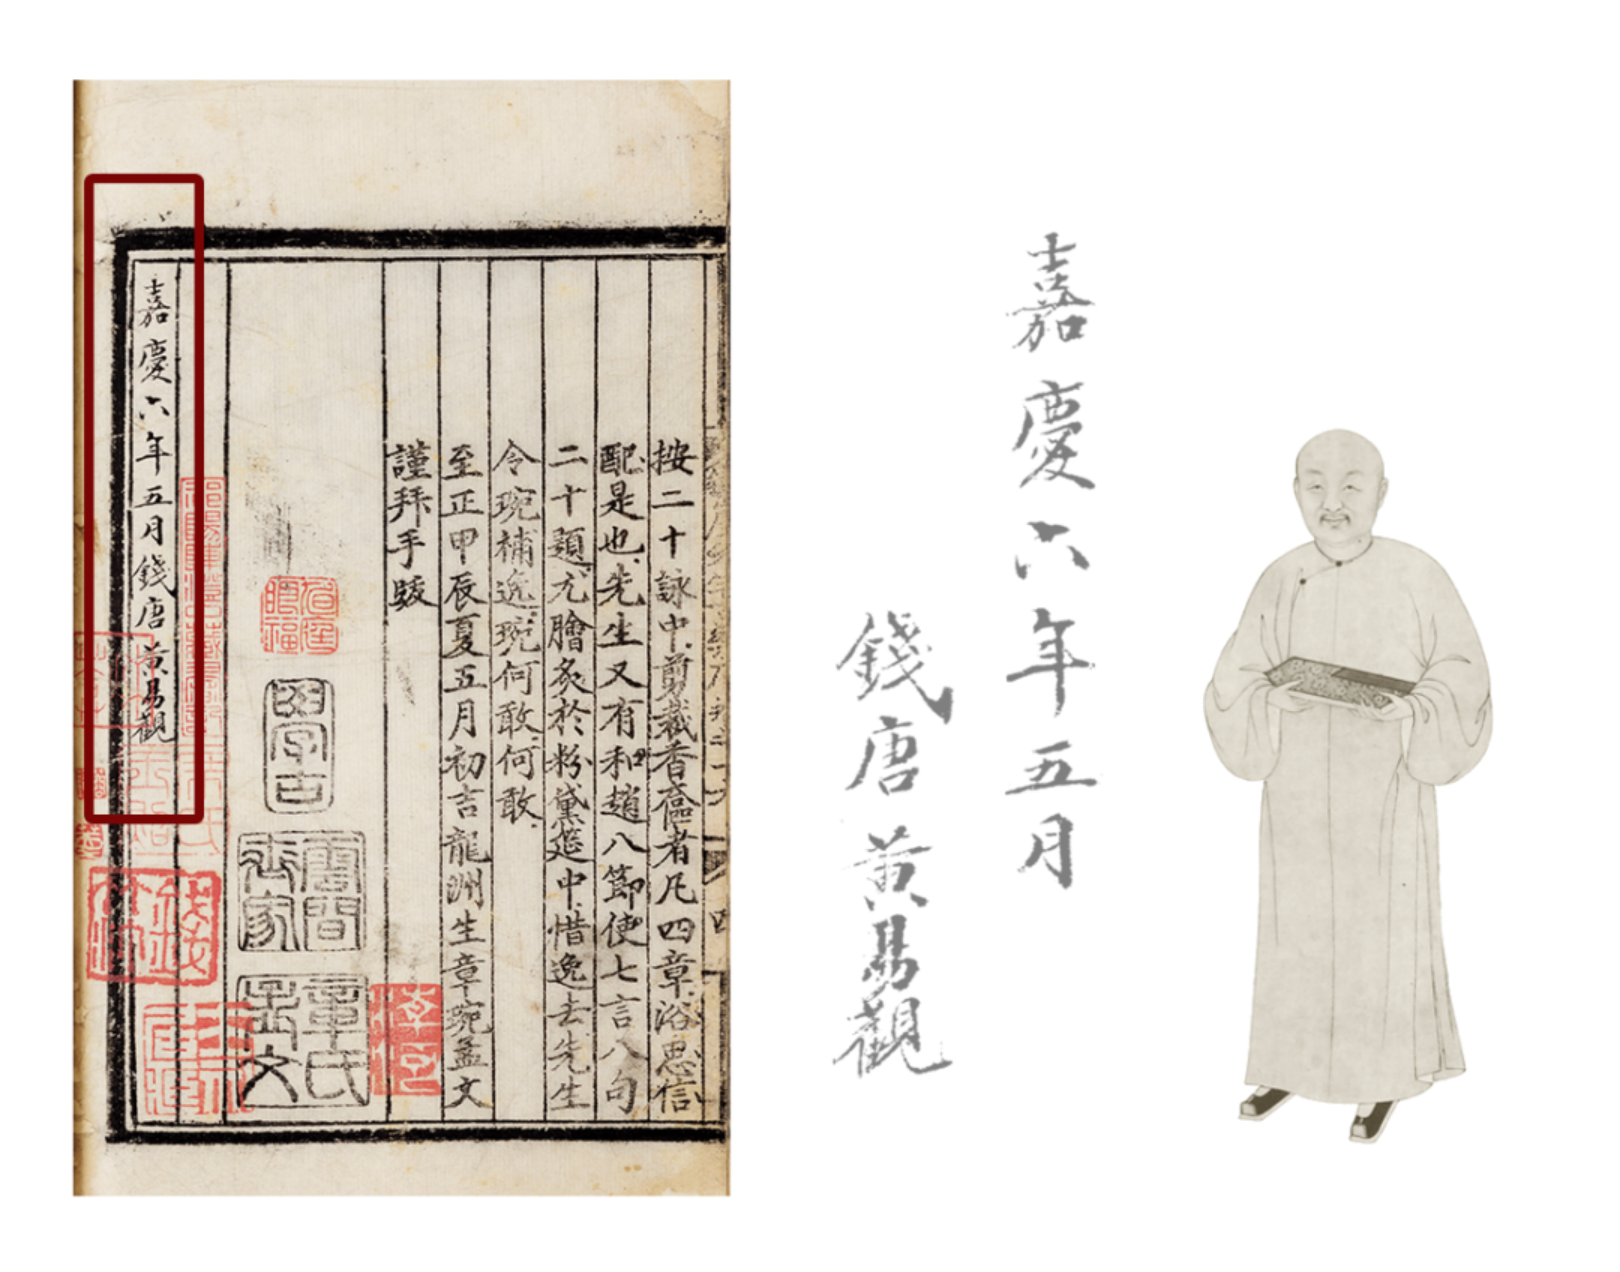 按二十詠中剪裁香奩者凡四章浴思信
配是也先生又有和趙八節使七言八句
二十題尤膾炙於粉黛筵中惜逸去先生
令琬補逸琬何敢何敢
至正甲辰夏五月初吉龍洲生章琬孟文
謹拜手跋
學古
雲間
齊家
章氏
孟文
嘉慶六年五月錢唐黃易觀
嘉慶六年五月
錢唐黃易觀